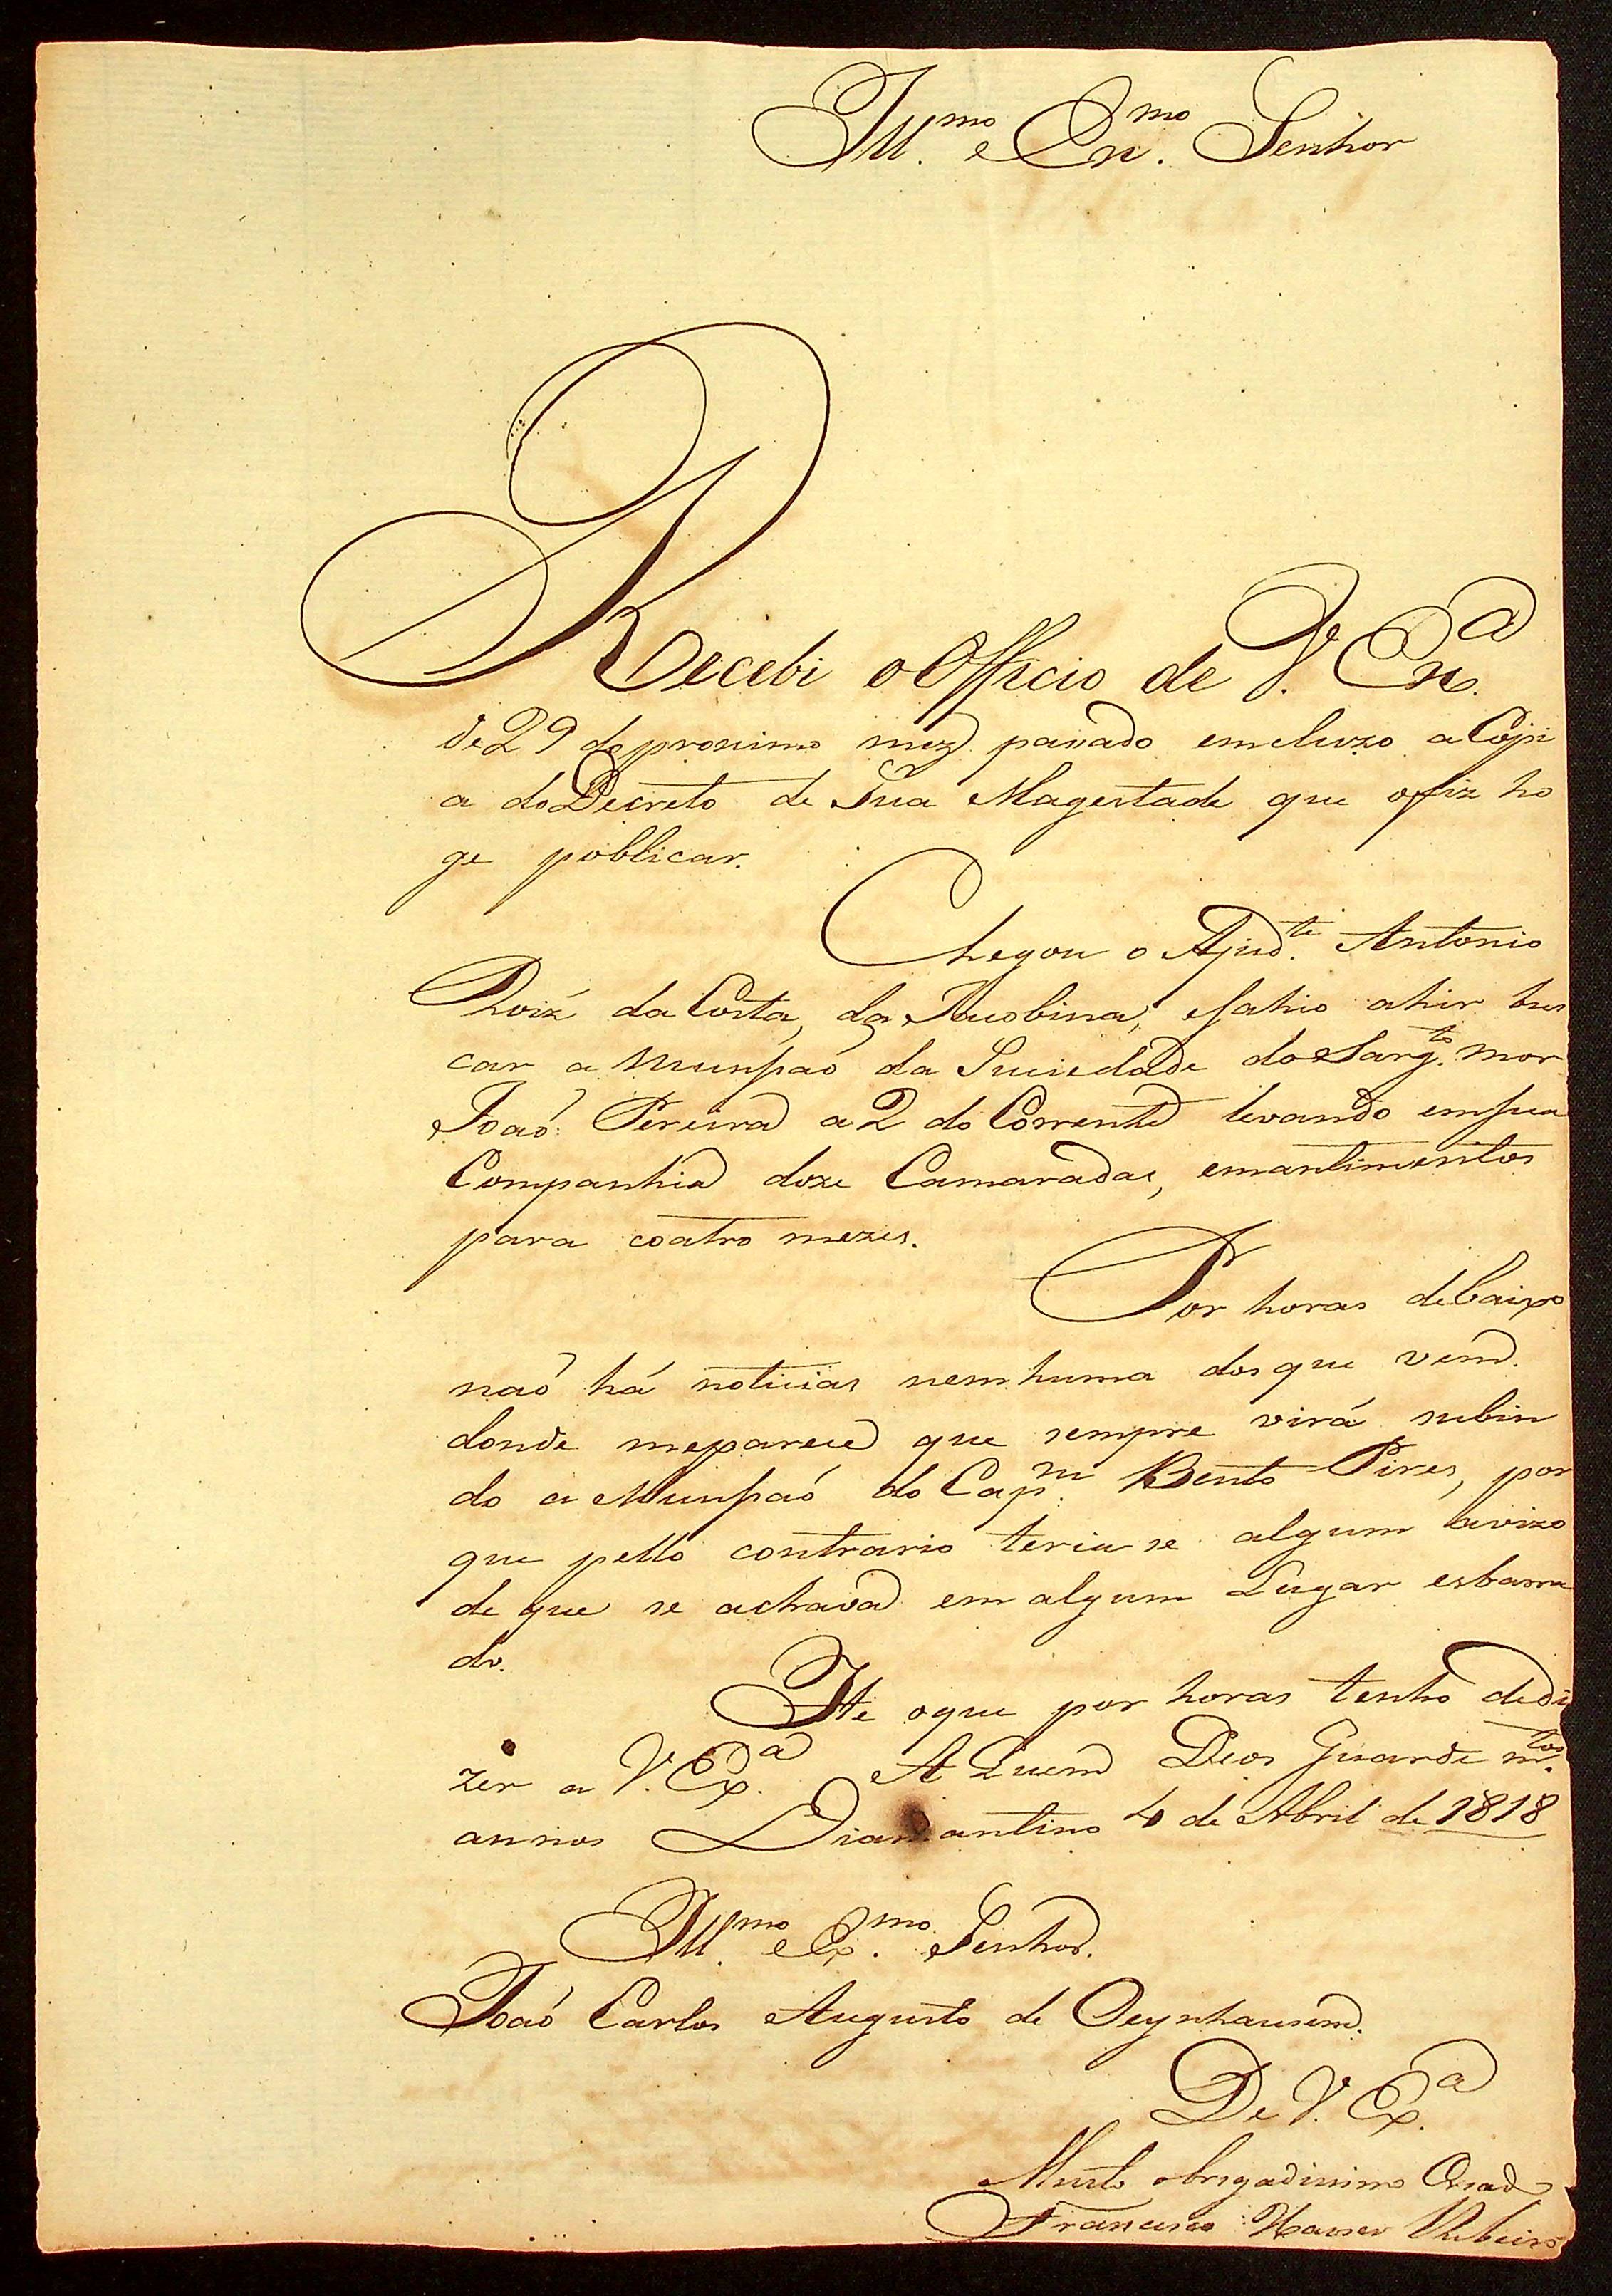 Ill.mo e Ex.mo Senhor
Recebi o Officio de V. Ex.a
de 29 do proximo mez passado emcluzo a Copi
a do Decreto de Sua Magestade que o fiz ho
ge poblicar.
Chegou o Ajud.te Antonio
Roiz da Costa, da Jacobina, e sahio ahir bus
car a Munsaó da Suciedade do Sarg.to mor
Joaó Pereira a 2 do Corrente levando em sua
Companhia doze Camaradas, emantimentos
para coatro mezes.
Por horas debaixo
naó há noticias nemhuma dos que vem.
donde meparece que sempre virá subin
do a Munsaó do Cap.m Bento Pires, por
que pello contrario teria se algum avizo
de que se achava em algum Lugar esbarra
do.
He oque por horas tenho dedi
zer a V. Ex.a A Quem Deos Guarde m.tos
annos Diamantino 4 de Abril de 1818
Ill.mo e Ex.mo Senhor.
Joaó Carlos Augusto de Oeynhausem.
De V. Ex.a
Muito obrigadissimo Criado
Francisco Xavier Ribeiro